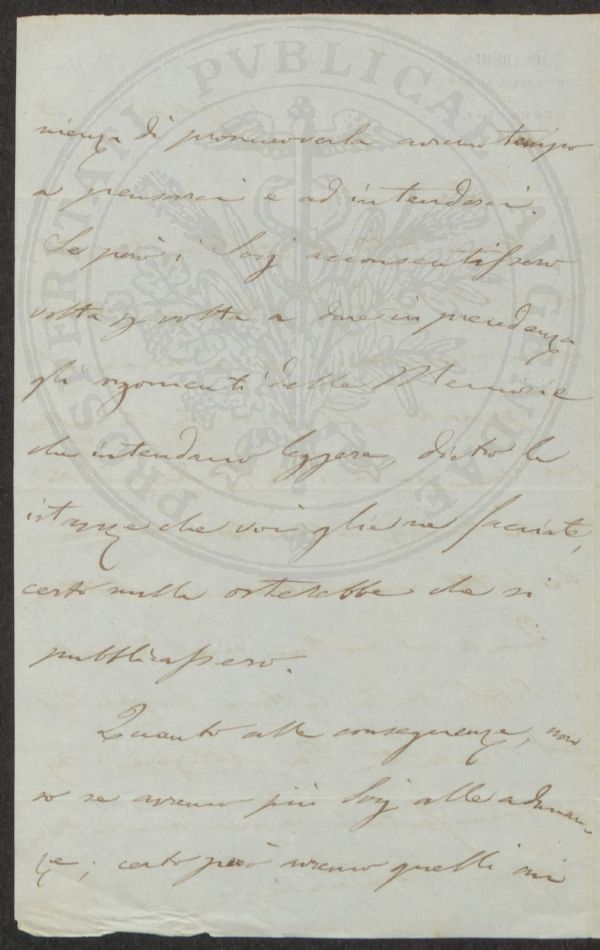 PROSPERITATI PVBLICAE AVGENDAE
nienza di promuoverla avremo tempo
a pensarci e ad intenderci.
Se però i Socj acconsentissero
volta p volta a dare in precedenza
gli argomenti delle Memorie
che intendano leggere, dietro le
istanze che voi gliene facciate,
certo nulla osterebbe che si
pubblicassero.
Quanto alle conseguenze, non
so se avremo più Socj alle adunan-
ze; certo però avremo quelli cui